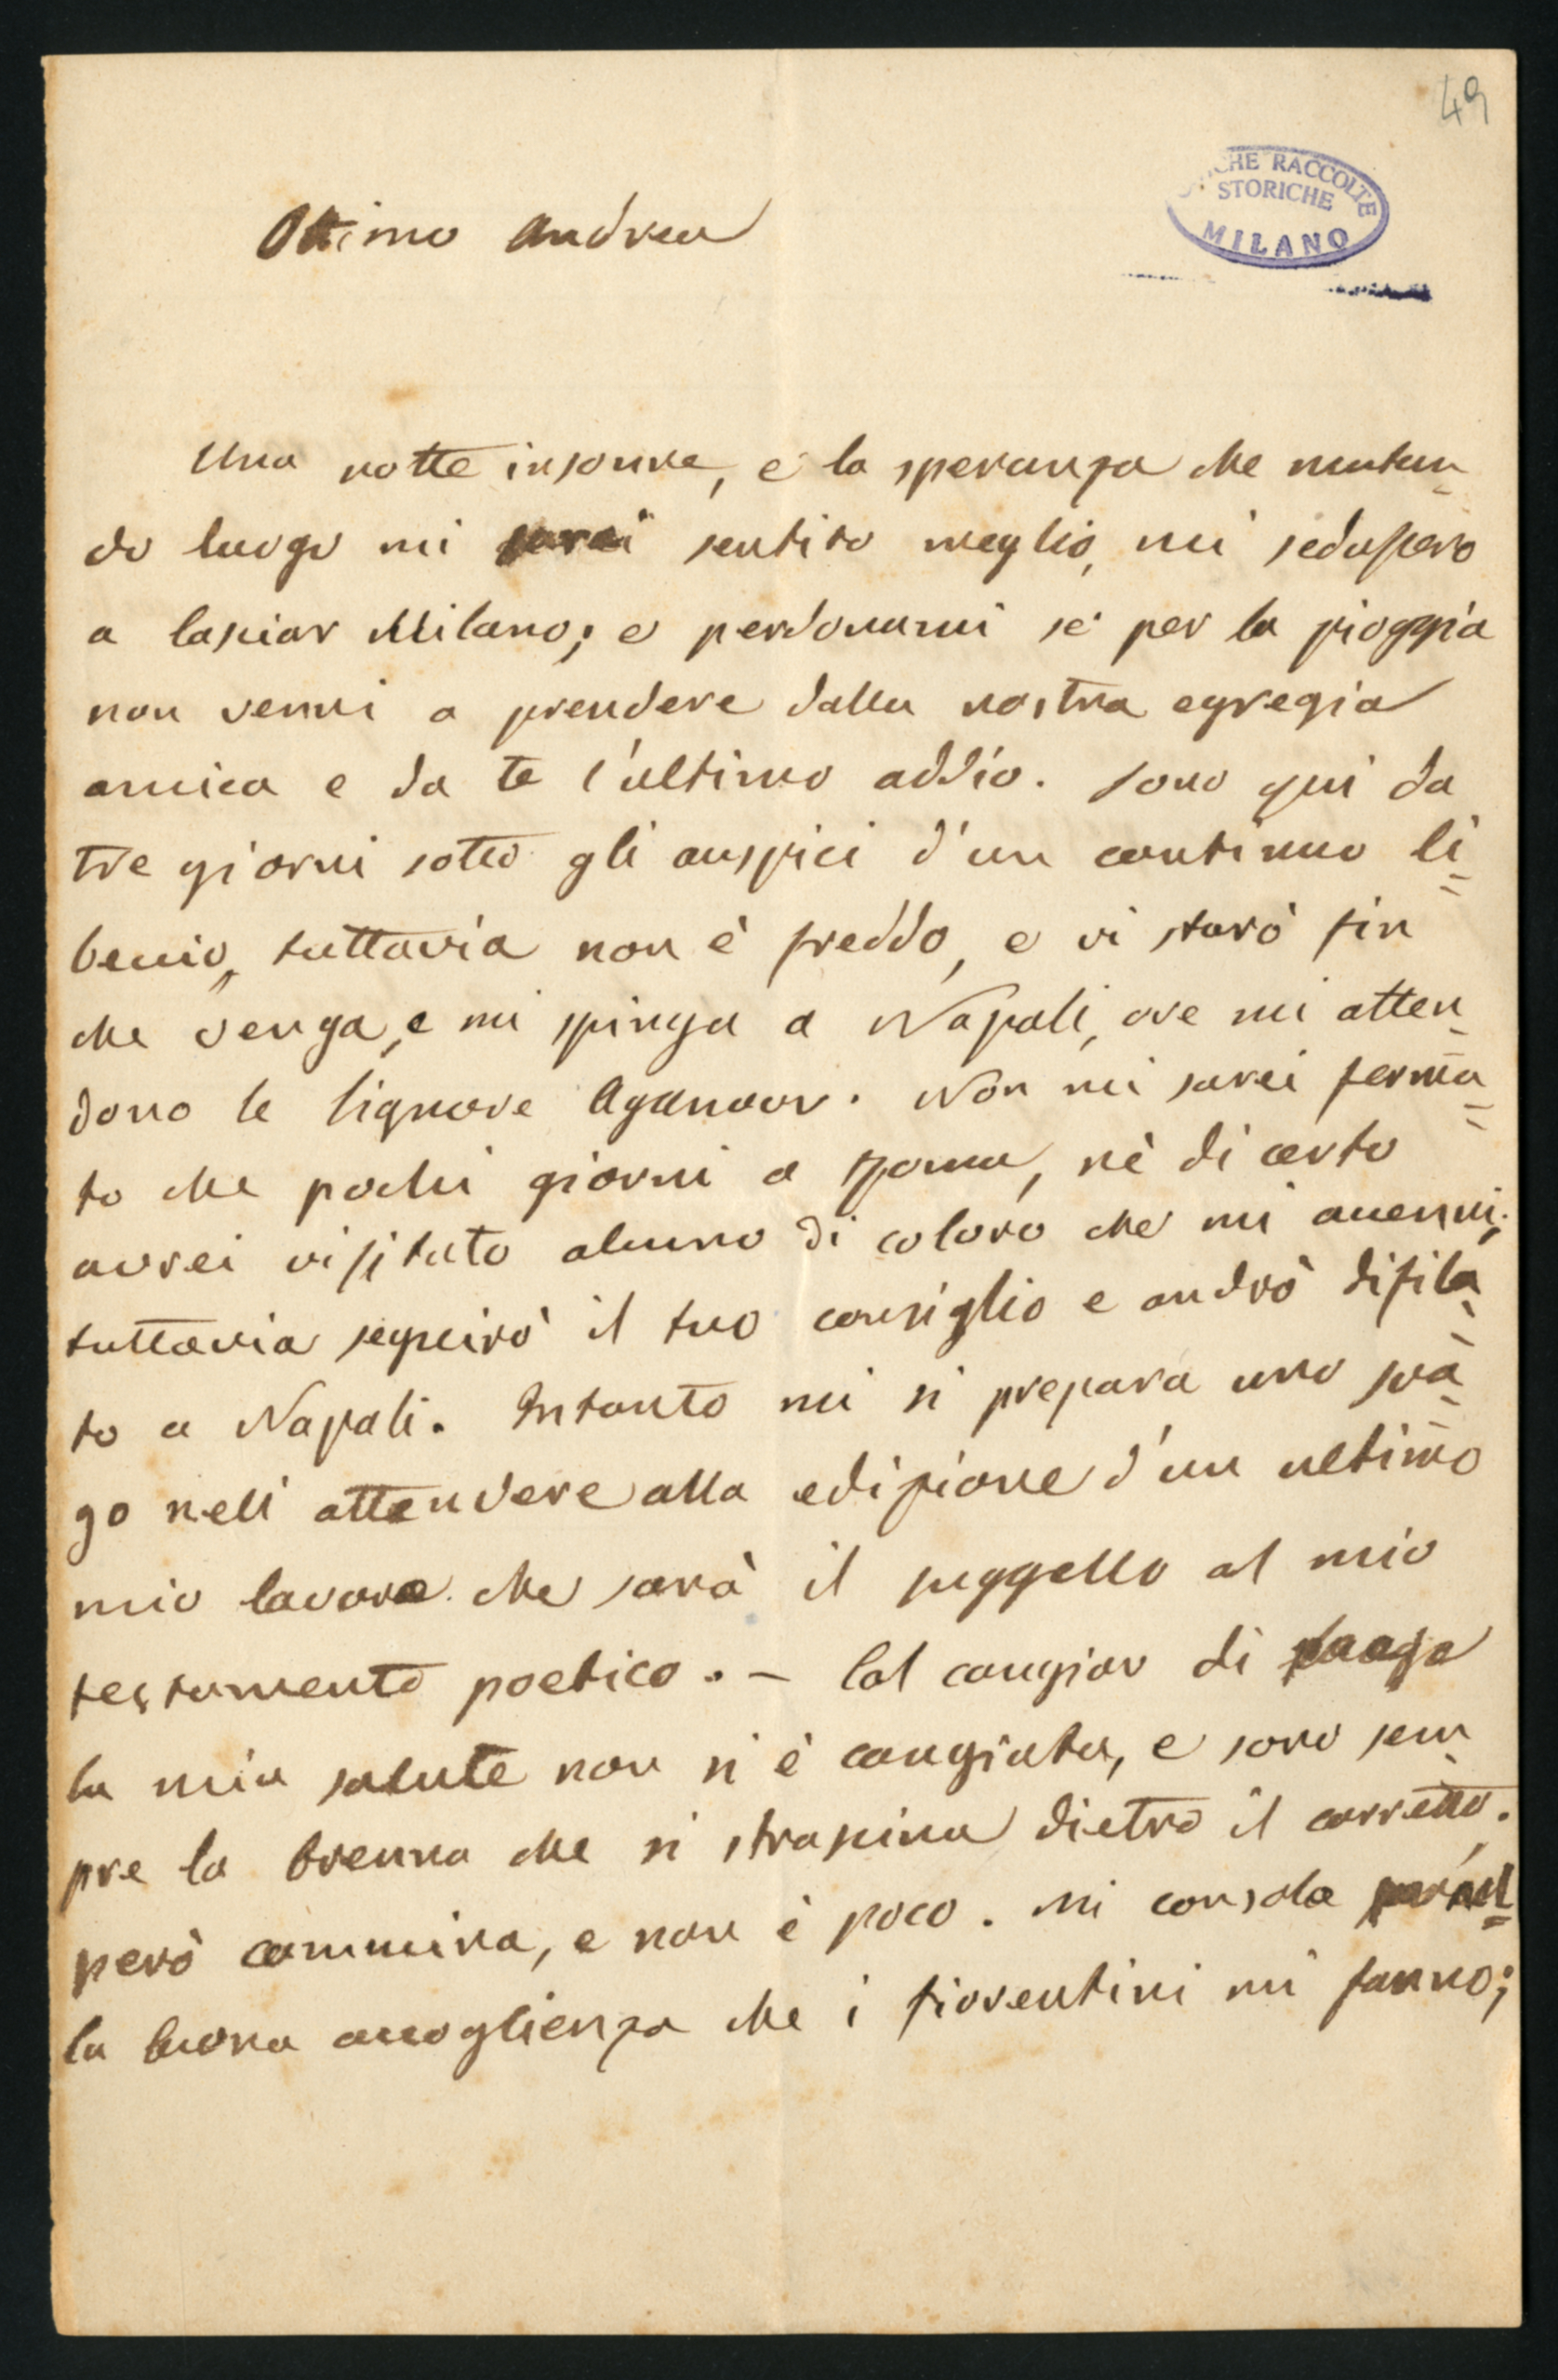 49
CHE RACCOLTE
STORICHE
MILANO
Ottimo Andrea
Una notte insonne, e la speranza che mutan-
do luogo mi sarei sentito meglio, mi sedussero
a lasciar Milano; e perdonami se per la pioggia
non venni a prendere dalla nostra egregia
amica e da te l'ultimo addio. Sono qui da
tre giorni sotto gli auspici d'un continuo li=
beccio, tuttavia non è freddo, e vi starò fin
che venga, e mi spinga a Napoli, ove mi atten-
dono le Signore Aganoor. Non mi sarei ferma=
to che pochi giorni a Roma, nè di certo
avrei visitato alcuno di coloro che mi accenni;
tuttavia seguirò il tuo consiglio e andrò difila-
to a Napoli. Intanto mi si prepara uno sva-
go nell'attendere alla edizione d'un ultimo
mio lavoro che sarà il suggello al mio
testamento poetico. – Col cangiar di
la mia salute non si è cangiata, e sono sem-
pre la brenna che si strascina dietro il carretto.
però cammina, e non è poco. Mi consola
la buona accoglienza che i fiorentini mi fanno;